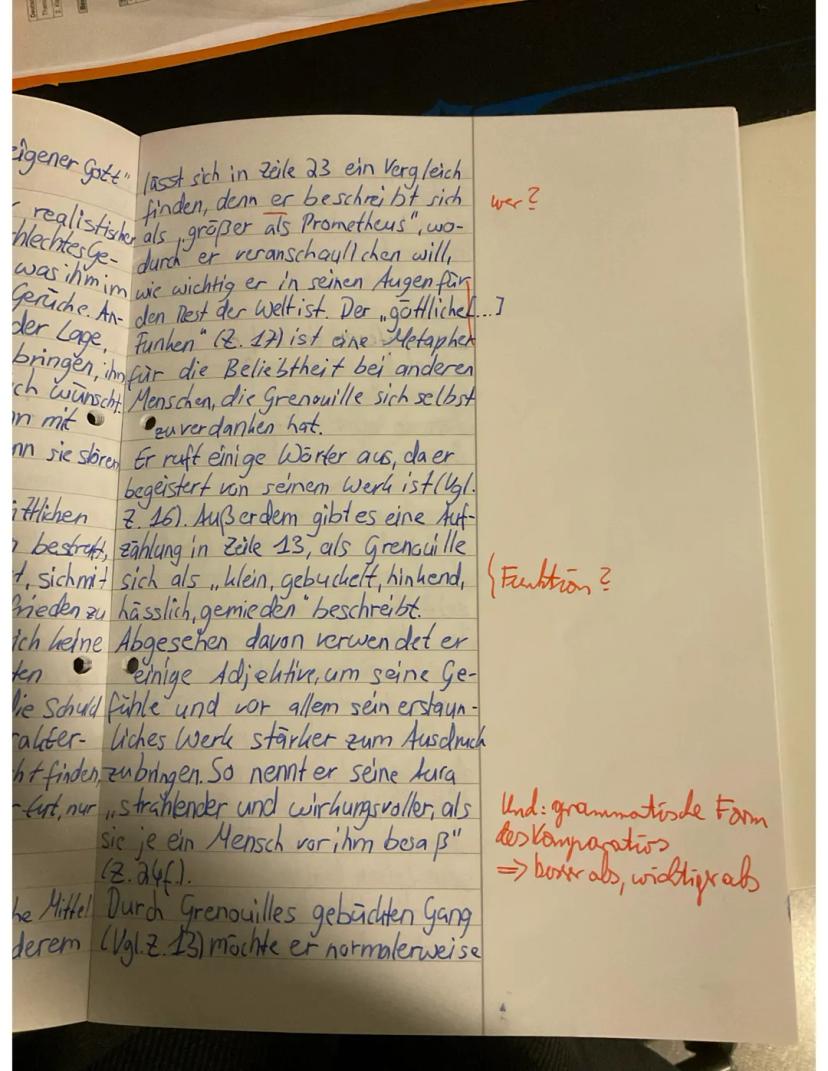 eigener Gott"
realistischer
schlechtes Ge-
was ihm im
Gerüche. An-
der Lage,
bringen, ihn
ch wünscht.
n mit
nn sie stören
ittlichen
bestraft,
t, sich mit
frieden zu
ich keine
ten
die Schuld
rakter-
ht finden,
furt, nur
he Mittel
derem
lässt sich in Zeile 23 ein Vergleich
finden, denn er beschreibt sich
als „größer als Prometheus", wo-
durch er veranschaulichen will,
wie wichtig er in seinen Augen für
den Rest der Welt ist. Der „göttliche[...]
Funken" (Z. 17) ist eine Metapher
für die Beliebtheit bei anderen
Menschen, die Grenouille sich selbst
zu verdanken hat.
Er ruft einige Wörter aus, da er
begeistert von seinem Werk ist (Vgl.
Z. 16). Außerdem gibt es eine Auf-
zählung in Zeile 13, als Grenouille
sich als „klein, gebuckelt, hinkend,
hässlich, gemieden" beschreibt.
Abgesehen davon verwendet er
einige Adjektive, um seine Ge-
fühle und vor allem sein erstaun-
liches Werk stärker zum Ausdruck
zu bringen. So nennt er seine Aura
„strahlender und wirkungsvoller, als
sie je ein Mensch vor ihm besaß"
(Z. 24f.).
Durch Grenouilles gebückten Gang
(Vgl. Z. 13) möchte er normalerweise
wer?
Funktion?
Und: grammatische Form
des Komparativs
=> besser als, wichtiger als